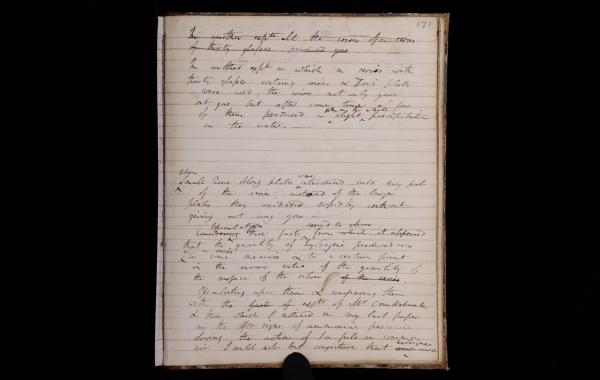 171
In another expt all the wires of a series
of thirty glasses produced gas
In another expt in which a series with
thirty glasses containg wires & Zinc plates
were used, the wires not only gave
out gas but after some time a few
of them produced a slight precipitation
in the water. —
upon
Small Zinc oblong plates were introduced into any part
of the series instead of the larger
plates they oxidated rapidly without
giving out any gas —
these facts seem'd to show from which it appeared
that the quantity of hydrogene produced was
in a series in some measure & to a certain point
in the inverse ratio of the quantity of
the surface of the silver of the series.
upon them & comparing them
with the facts of expts of Mr Cruickshank
& those which I noticed in my last paper
on the signs of ammoniac
during the action of the pile in common
air I could not but conjecture that hydrogene